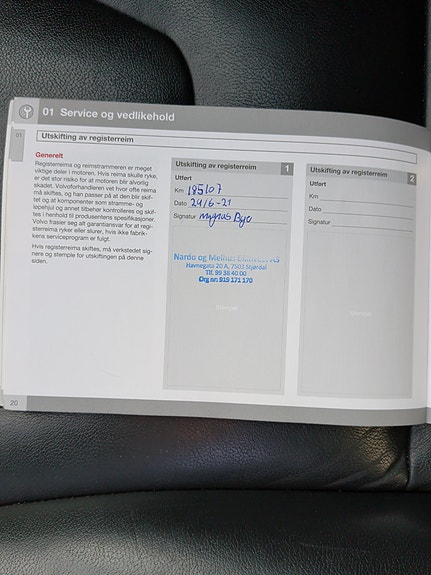 01 Service og vedlikehold
01
Utskifting av registerreim
Generelt
Registerreima og reimstrammeren er meget
viktige deler i motoren. Hvis reima skulle ryke,
er det stor risiko for at motoren blir alvorlig
skadet. Volvoforhandleren vet hvor ofte reima
må skiftes, og han passer på at den blir skif-
tet og at komponenter som stramme- og
løpehjul og annet tilbehør kontrolleres og skif-
tes i henhold til produsentens spesifikasjoner.
Volvo frasier seg alt garantiansvar for at regi-
sterreima ryker eller slurer, hvis ikke fabrik-
kens serviceprogram er fulgt.
Hvis registerreima skiftes, må verkstedet sig-
nere og stemple for utskiftingen på denne
siden.
Utskifting av registerreim 1
Utført
Km 185107
Dato 24/6-21
Signatur
Nardo og
Havnegata 20 A, 7503 Stjørdal
Tlf. 99 38 40 00
Org nr: 919 171 170
Stempel
Utskifting av registerreim 2
Utført
Km
Dato
Signatur
Stempel
20